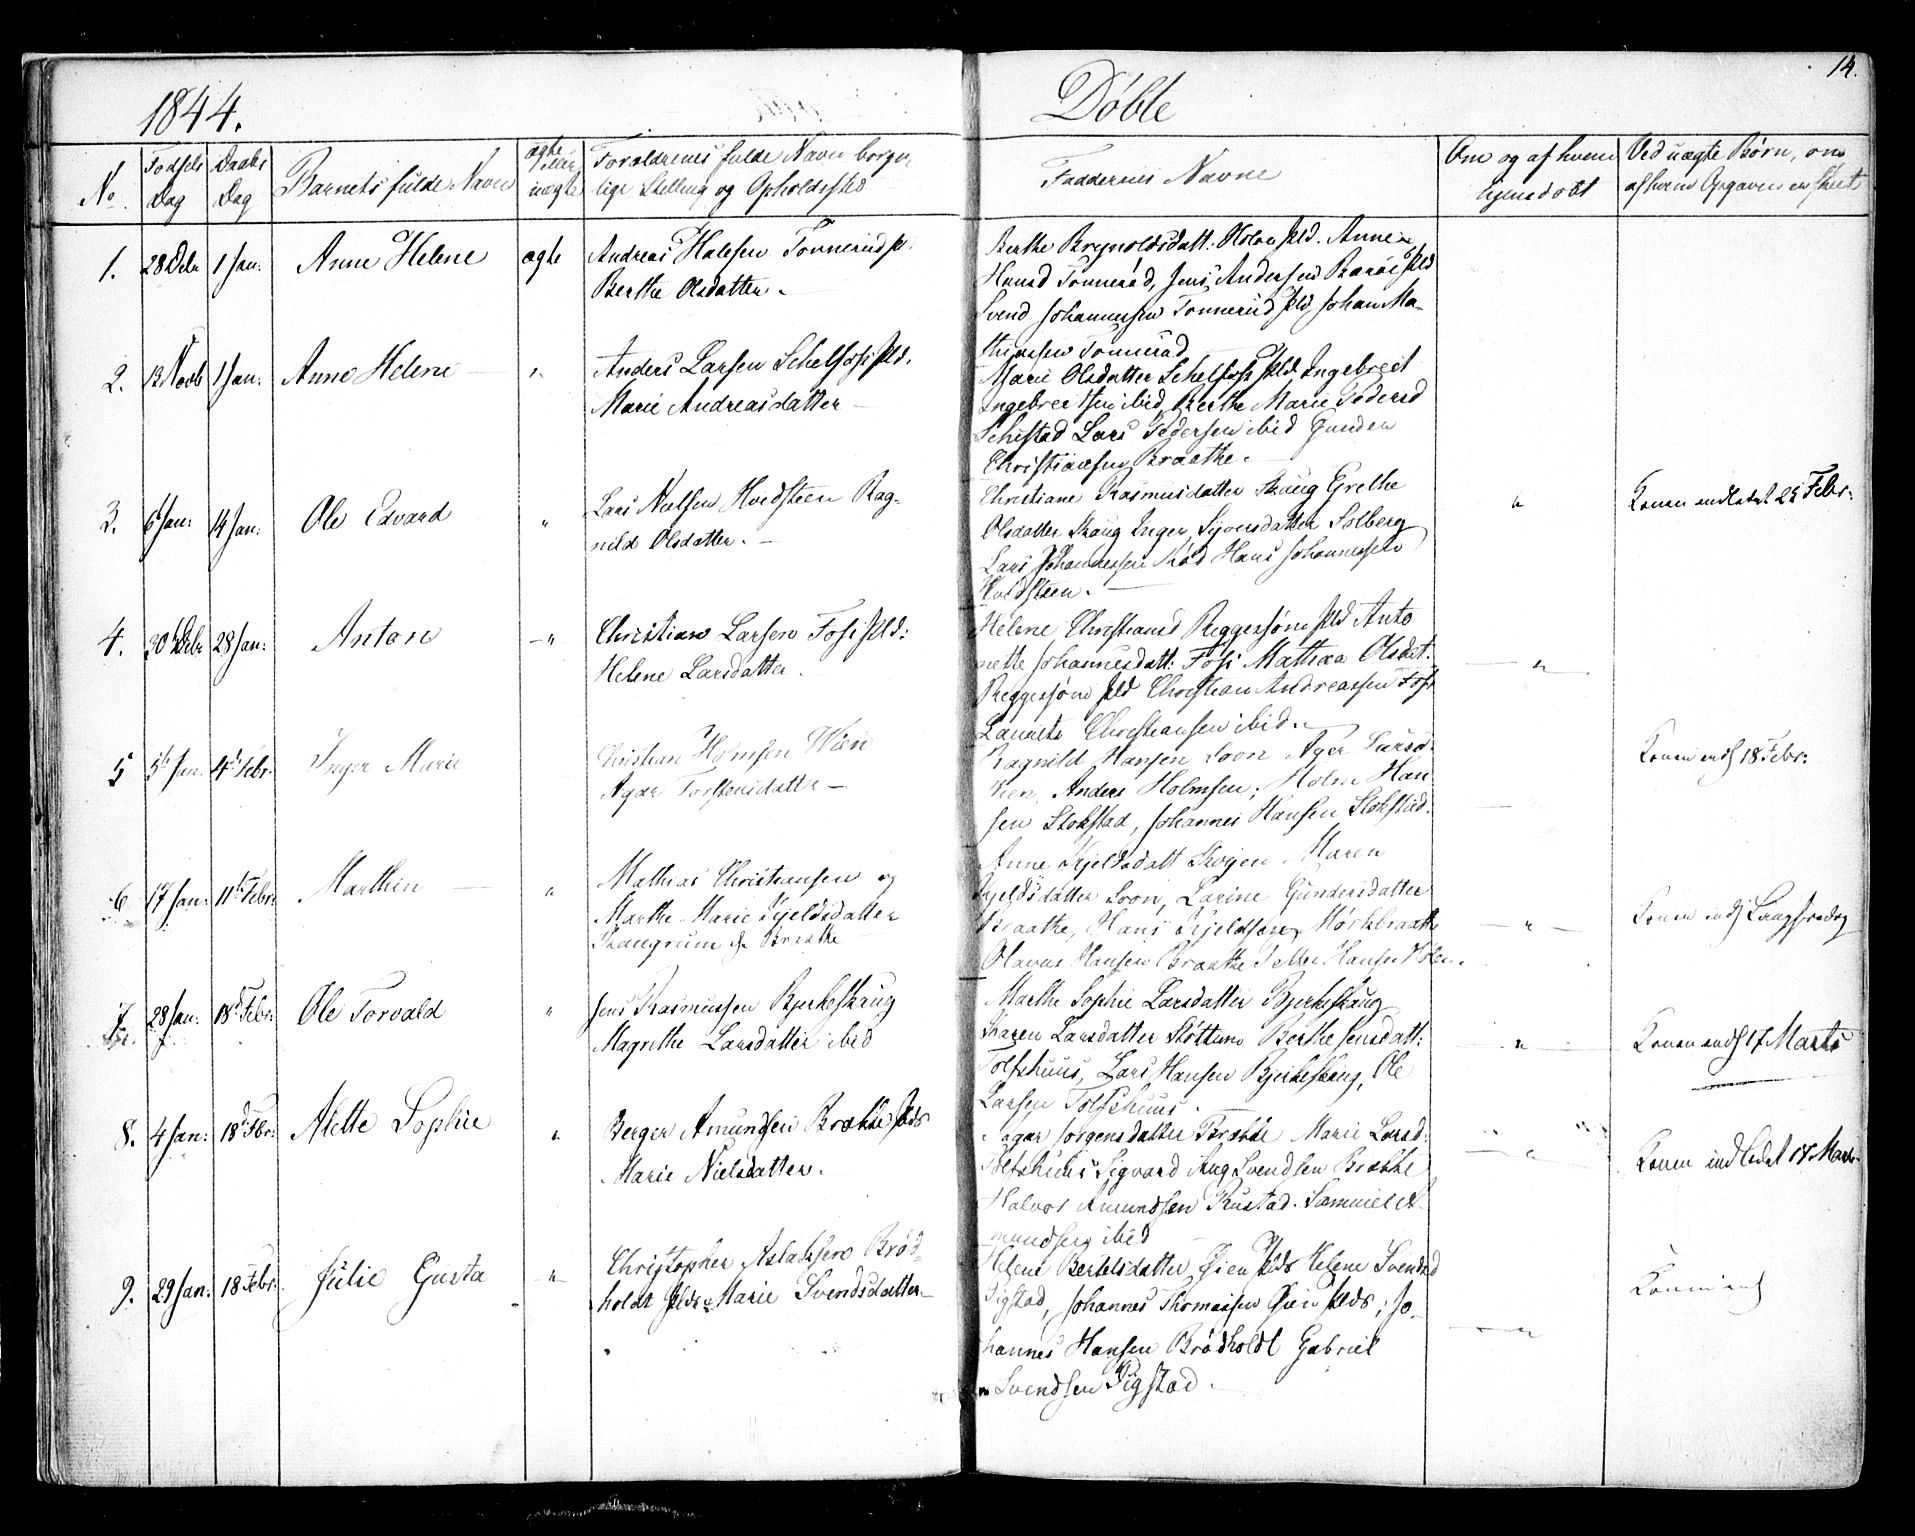 1844.
Døbte
14.
No.
Fødsels Dag
Daabs Dag
Barnets fulde Navn
ægte eller uægte
Forældrenes fulde Navn borger-
lige Stilling og Opholdssted
Faddernes Navne
Om og af hvem
hjemedøbt
Ved uægte Børn, om
af hvem Opgaven er skeet
1. 28 Debr 1 Jan: Anne Helene ægte
Andreas Halvsen Tonnerudpl.
Berthe Olsdatter.
Berthe Brynoldsdatt: Holen Pld. Anne
Hansd Tonnerød, Jens Andersen Pld
Svend Johannesen Tonnerud Pld Johan Ma-
thiasen Tonnerød
2. 13 Novb 1 Jan: Anne Helene "
Anders Larsen Schelfoss Pld.
Marie Andreasdatter
Marie Olsdatter Schelfoss Pld. Ingebret
Ingebretsen ibid, Berthe Marie Pedersd
Schistad Lars Pedersen ibid Gunder
Christiansen Braathe.
3. 6 Jan: 14 Jan: Ole Edvard "
Lars Nielsen Hvidsteen Rag-
nild Olsdatter.
Christiane Rasmusdatter Skaug Grethe
Olsdatter Skaug Inger Syversdatter Solberg
Lars Johannessen Rød Hans Johannessen
Hvidsteen.
"
Konen indledet 25 Febr:
4. 30 Debr 28 Jan: Anton "
Christian Larsen Foss Pld:
Helene Larsdatter.
Helene Christians Pld Anto
nette Johannesdatt: Foss Mathea Olsdat:
Pld Christian Andreassen Foss
Laurets Christiansen ibid.
"
5 5te Jan: 4de Febr: Inger Marie
Christian Holmsen Wien
Agar Torstensdatter
Ragnild Hansen Soon Agar Larsd.
Wien, Anders Holmsen; Holm Han
sen Stokstad, Johannes Hansen Stokstad.
Konen inds 18 Febr:
6 17 Jan: 11te Febr: Marthin "
Mathias Christiansen og
Marthe Marie Kjeldsdatter
Braathe
Anne Kjeldsdatt Skogen Maren
Kjeldsdatter Soon, Larine Gundersdatter
Braathe, Hans Kjeldsen Mørkbraathe
Olavus Hansen Braathe Petter Hansen Holen.
"
Konen inds Langfredag
7. 28 Jan: 18de Febr: Ole Torvald "
Jens Rasmussen Bjerkeskaug
Magrethe Larsdatter ibid
Marthe Sophie Larsdatter Bjerkeskaug
Karen Larsdatter Støttum Berthe Jensdatt:
Tolfshuus, Lars Hansen Bjerkeskaug, Ole
Larsen Tolfshuus.
"
Konen inds 17 Marts
8. 4 Jan: 18de Fbr: Alette Sophie "
Berger Amundsen Brække Plds
Marie Nielsdatter.
Aagar Jorgensdatter Brække Marie Larsd:
Tolfshuus Sigvard Aug Svendsen Brække
Halvor Amundsen Rustad. Samuel A-
mundsen ibid
"
Konen indledet 17 Marts
9. 29 Jan: 18 Febr: Julie Gusta "
Christopher Aslaksen Brød-
holdt Plds Marie Svendsdatter
Helene Bertelsdatter Øien Plds Helene Svendsd
Sigstad, Johannes Thomassen Øien Plds; Jo-
hannes Hansen Brødholdt Gabriel
Svendsen Sigstad.
"
Konen inds